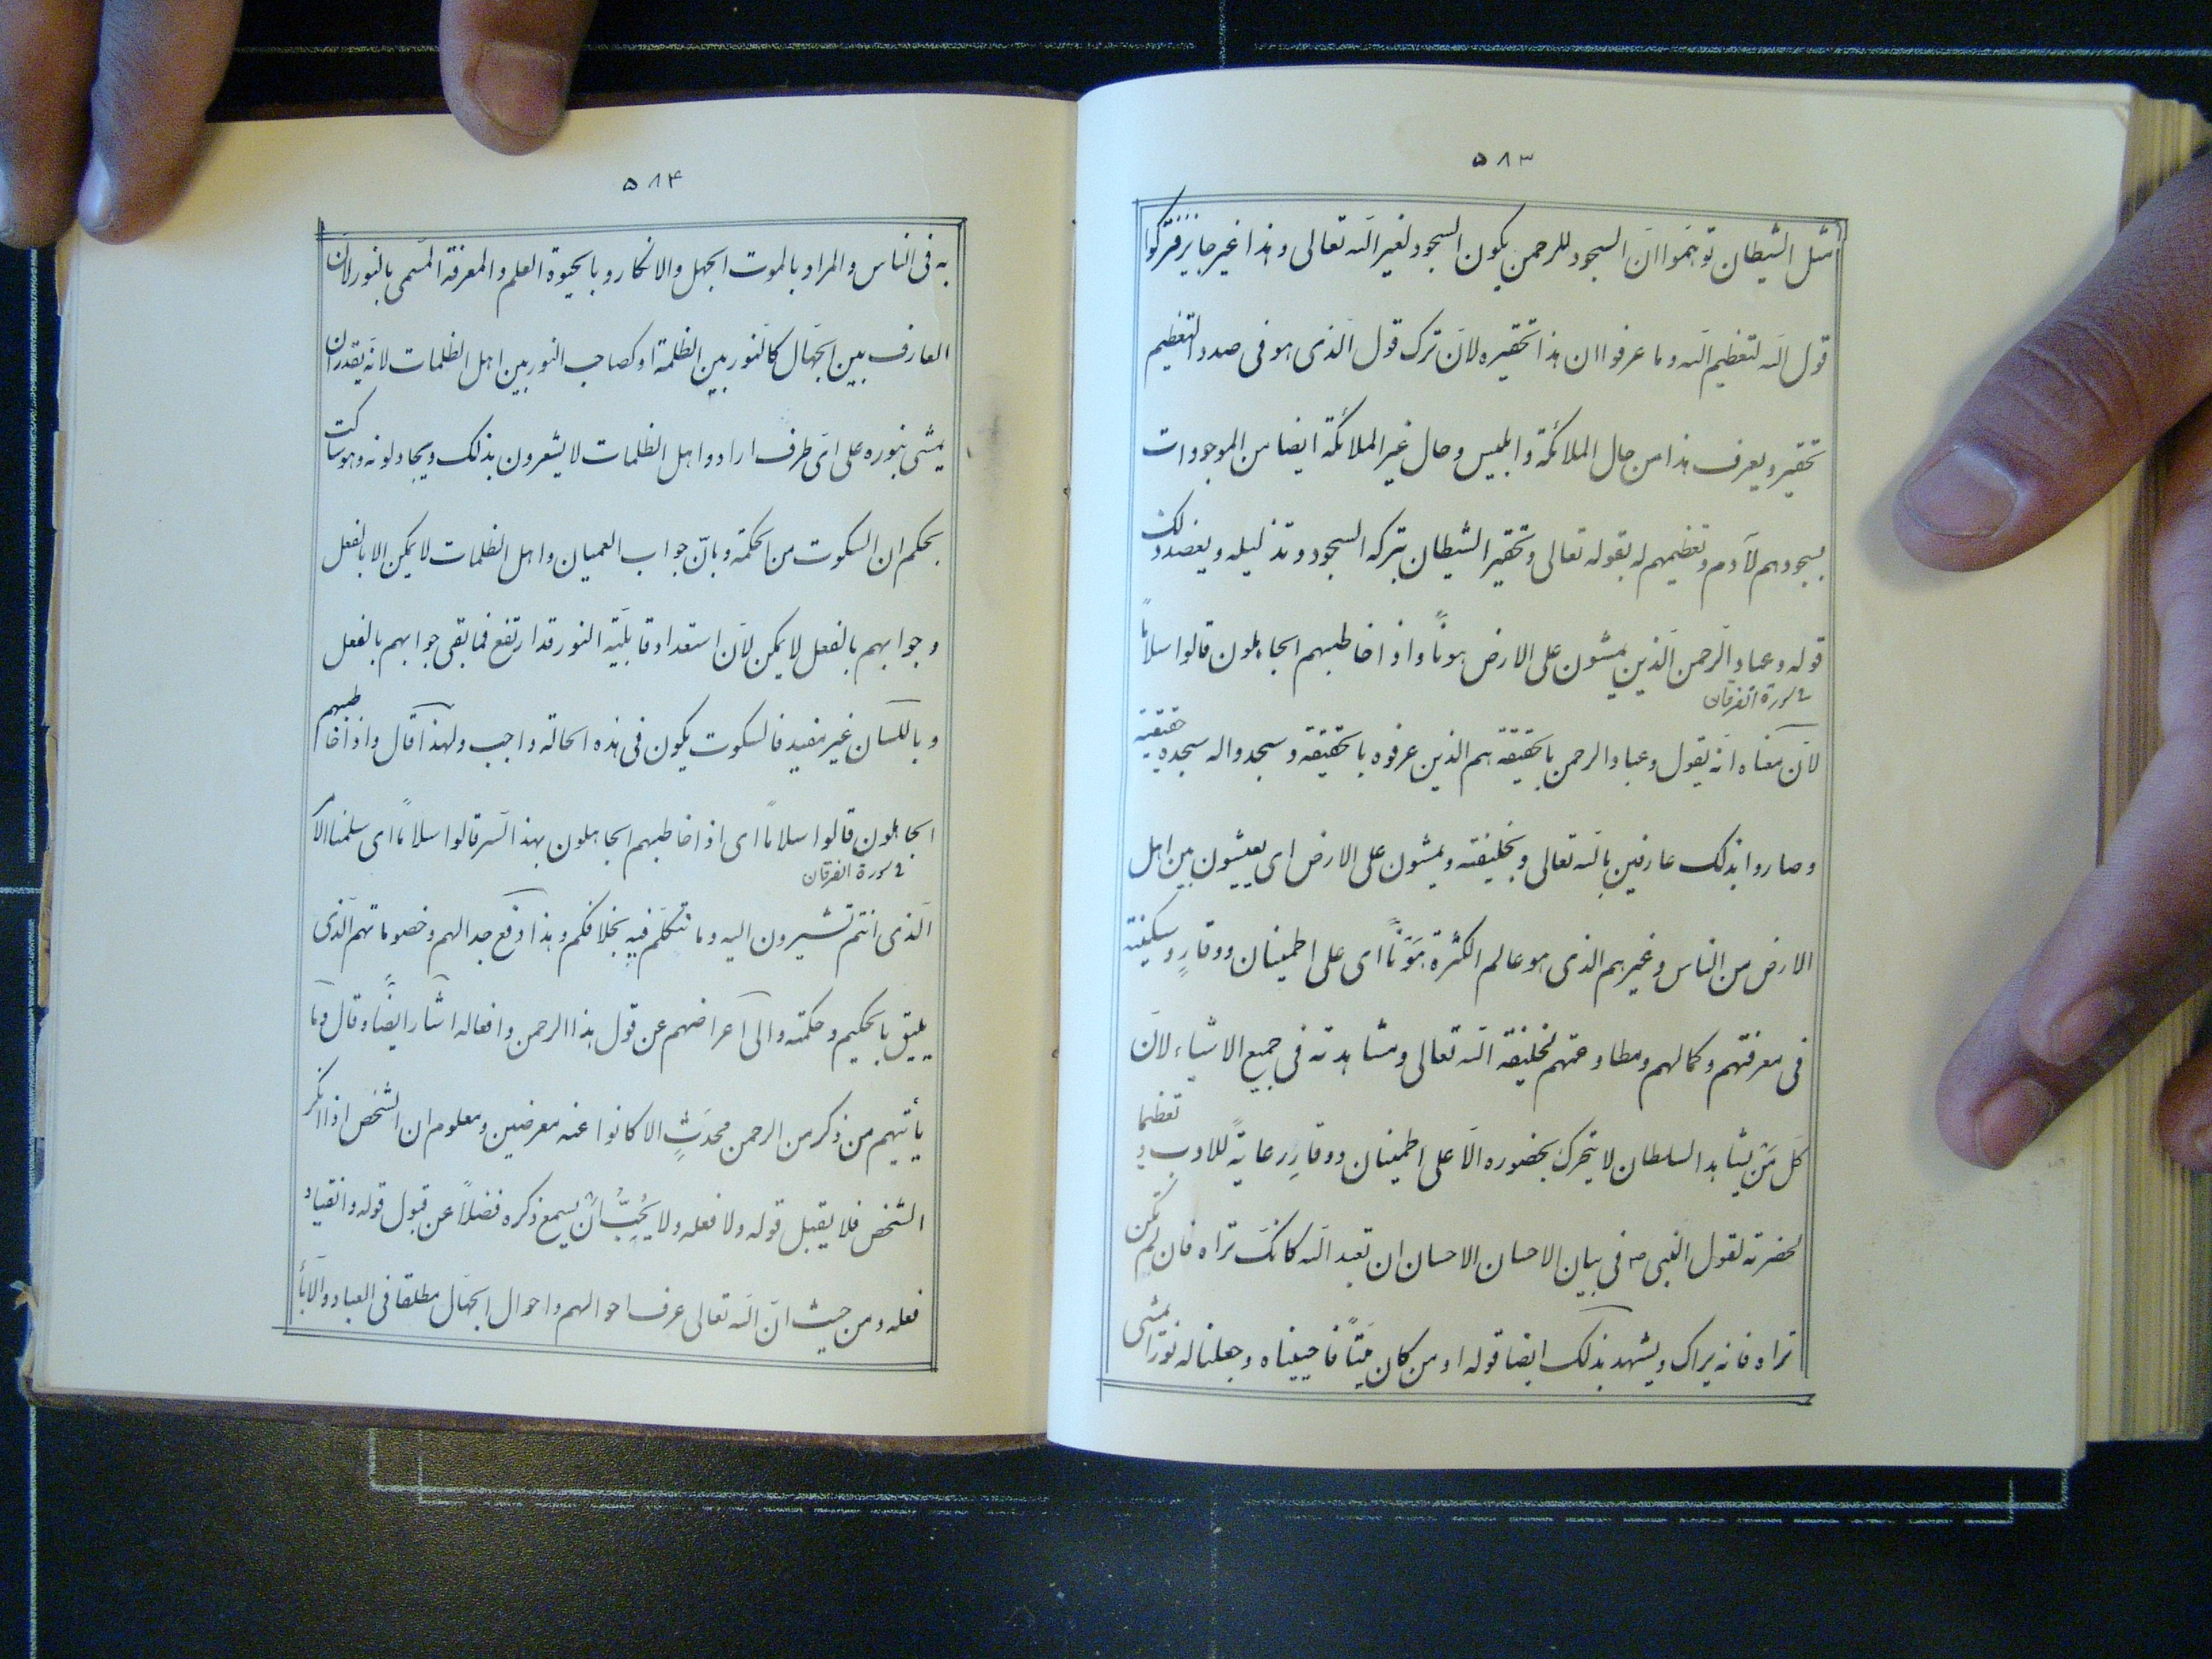 ۵۸۳
مثل الشیطان توهّموا انّ السجود للرحمن یکون السجود لغیر الله تعالی و هذا غیر جایز فترکوا
قول الله لتعظیم الله و ما عرفوا ان هذا تحقیره لانّ ترک قول الذی هو فی صدد التعظیم
تحقیر و یعرف هذا من حال الملائکة و ابلیس و حال غیر الملائکة ایضا من الموجودات
بسجودهم لآدم و تعظیمهم له بقوله تعالی و تحقیر الشیطان بترکه السجود و تذلیله و یعضد ذلک
قوله و عباد الرحمن الّذین یمشون علی الارض هونًا و اذا خاطبهم الجاهلون قالوا سلامًا
فی سورة الفرقان
لانّ معناه انّه یقول و عباد الرحمن بالحقیقة هم الذین عرفوه بالحقیقة و سجدوا له سجدة حقیقیة
و صاروا بذلک عارفین بالله تعالی و بخلیفته و یمشون علی الارض ای یعیشون بین اهل
الارض من الناس و غیرهم الذی هو عالم الکثرة هَوْنًا ای علی اطمینان و وقارٍ و سکینة
فی معرفتهم و کمالهم و مطاوعتهم لخلیفة الله تعالی و مشاهدته فی جمیع الاشیاء لانّ
کل مَنْ یشاهد السلطان لا یتحرک بحضوره الّا علی اطمینان و وقارٍ رعایةً للادب و تعظیما
لحضرته لقول النبی ص فی بیان الاحسان الاحسان ان تعبد الله کانّک تراه فان لم تکن
تراه فانه یراک و یشهد بذلک ایضا قوله او من کان میّتًا فاحییناه و جعلنا له نورًا یمشی
۵۸۴
به فی الناس و المراد بالموت الجهل و الانکار و بالحیوة العلم و المعرفة المسمی بالنور لانّ
العارف بین الجهّال کالنّور بین الظلمة او کصاحب النور بین اهل الظلمات لانّه یقدر ان
یمشی بنوره علی ایّ طرف اراد و اهل الظلمات لا یشعرون بذلک و یجادلونه و هو ساکت
بحکم ان السکوت من الحکمة و بانّ جواب العمیان و اهل الظلمات لا یمکن الا بالفعل
و جوابهم بالفعل لا یمکن لانّ استعداد قابلیّة النور قد ارتفع فما بقی جوابهم بالفعل
و باللسان غیر مفید فالسکوت یکون فی هذه الحالة واجب و لهذا قال و اذا خاطبهم
الجاهلون قالوا سلامًا ای اذا خاطبهم الجاهلون بهذا السر قالوا سلامًا ای سلمنا الامر
فی سورة الفرقان
الّذی انتم تشیرون الیه و ما نتکلّم فیه بخلافکم و هذا دفع جدالهم و خصوماتهم الّذی
یلیق بالحکیم و حکمته و الی اعراضهم عن قول هذا الرحمن و افعاله اشار ایضًا و قال و ما
یأتیهم من ذکر من الرحمن محدَثٍ الا کانوا عنه معرضین و معلوم ان الشخص اذا انکر
الشخص فلا یقبل قوله و لا فعله و لا یُحِبُّ انْ یسمع ذکره فضلاً عن قبول قوله و انقیاد
فعله و من حیث انّ الله تعالی عرف احوالهم و احوال الجهّال مطلقا فی العباد و الابا